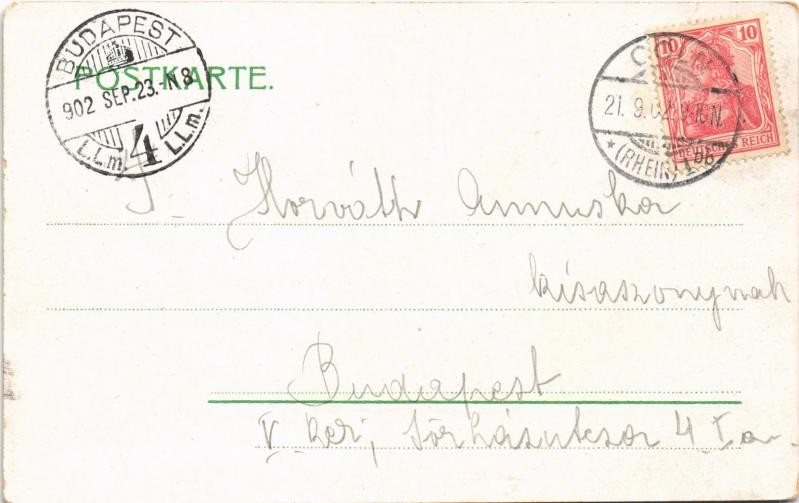 BUDAPEST
902 SEP. 23.-N 8
4
L.L.m. L.L.m.
POSTKARTE.
CÖLN
21. 9. 02
* (RHEIN) 1
10 10
DEUTSCHES REICH
T. Horváth Annuska
kisaszonynak
Budapest
V. ker, Sörházutcza 4 I a.